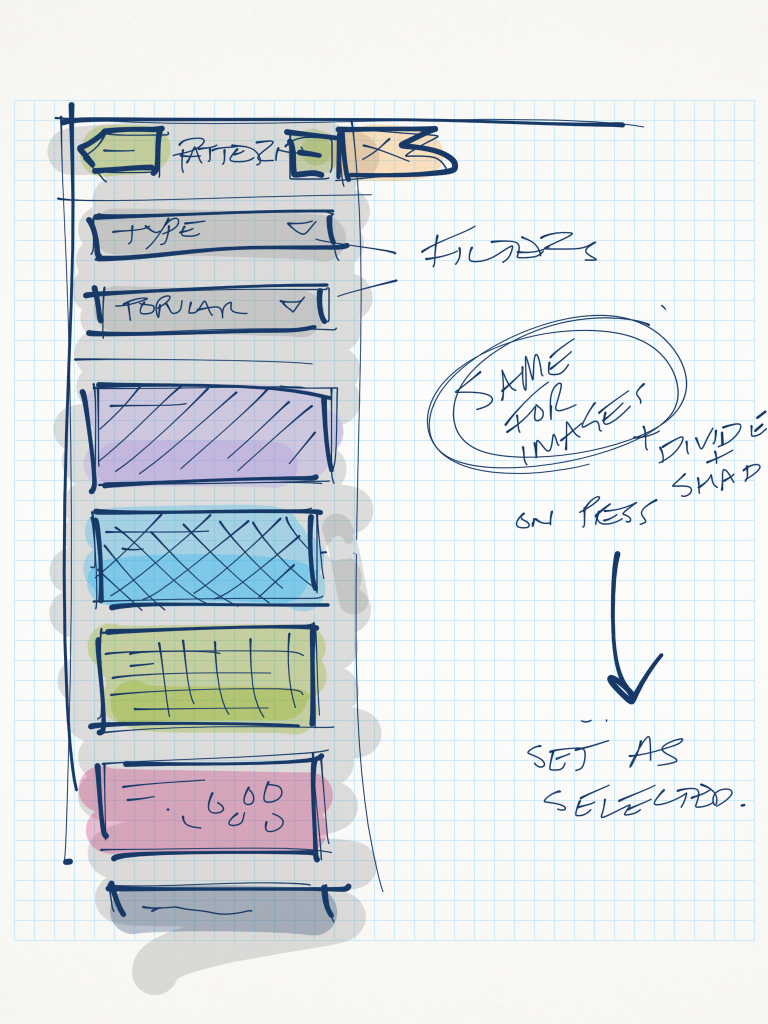 PATTERN
TYPE
FILTERS
POPULAR
SAME
FOR
IMAGES
+ DIVIDE
+
SHAD
ON PRESS
SET AS
SELECTED.